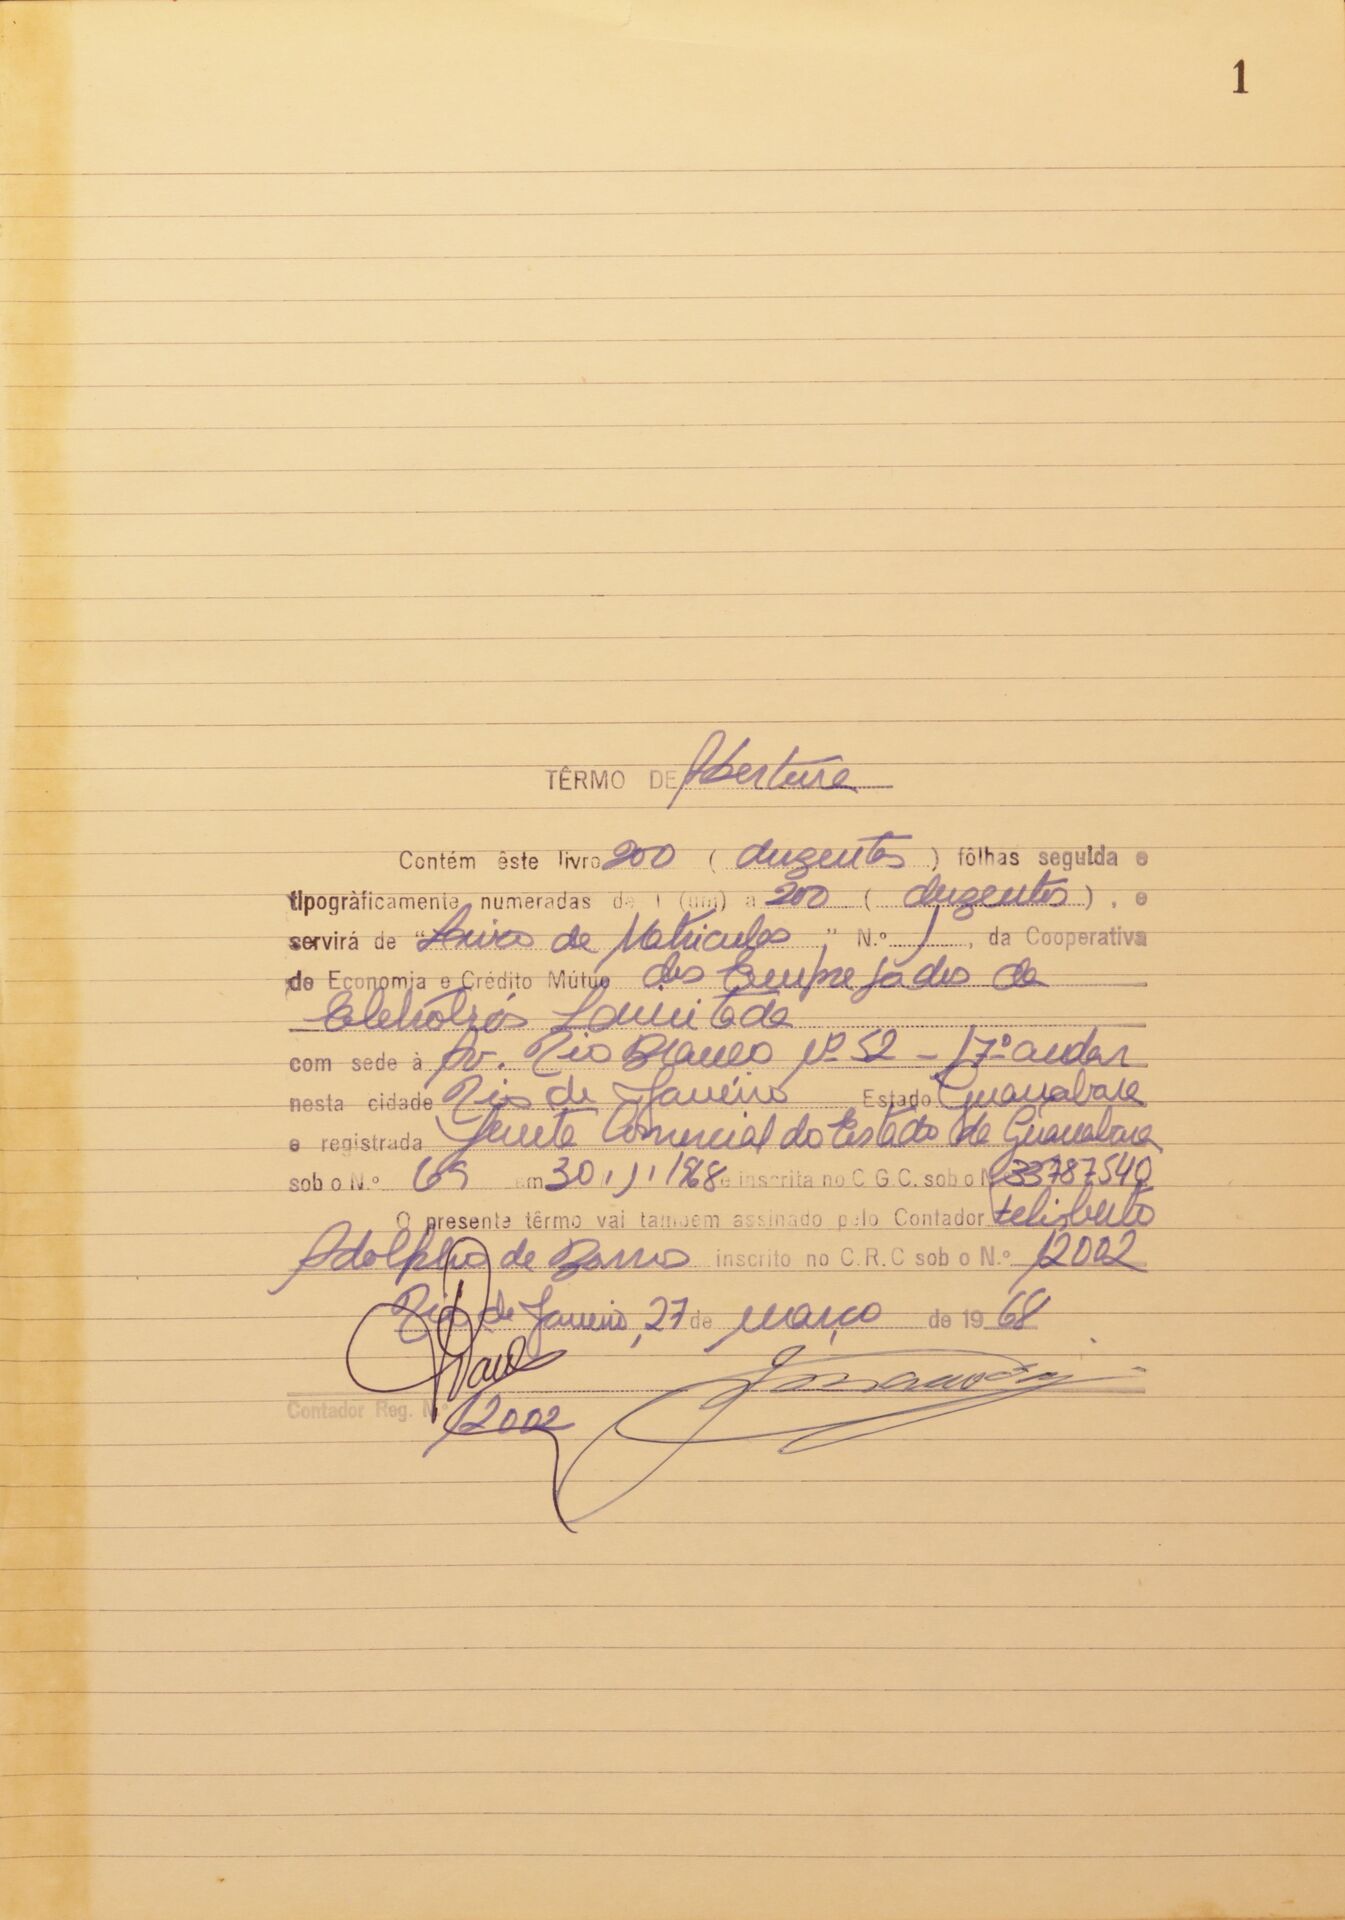 1
TÊRMO DE Abertura
Contém êste livro 200 ( duzentas ) fôlhas seguida e
tipogràficamente numeradas de 1 (um) a 200 ( duzentos ) , e
servirá de "Livro de Matriculas" N.º 1 , da Cooperativa
de Economia e Crédito Mútuo dos Empregados da
Eletrobrás Limitada
com sede à Av. Rio Branco nº 52 - 17º andar
nesta cidade Rio de Janeiro Estado Guanabara
e registrada Junta Comercial do Estado da Guanabara
sob o N.º 69 em 30 / 1 / 1968 e inscrita no C G.C. sob o N.º 33787540
O presente têrmo vai tambem assinado pelo Contador Felisberto
Adolpho de Barros inscrito no C.R.C sob o N.º 12002
Rio de Janeiro, 27 de março de 1968
Contador Reg. N
12002